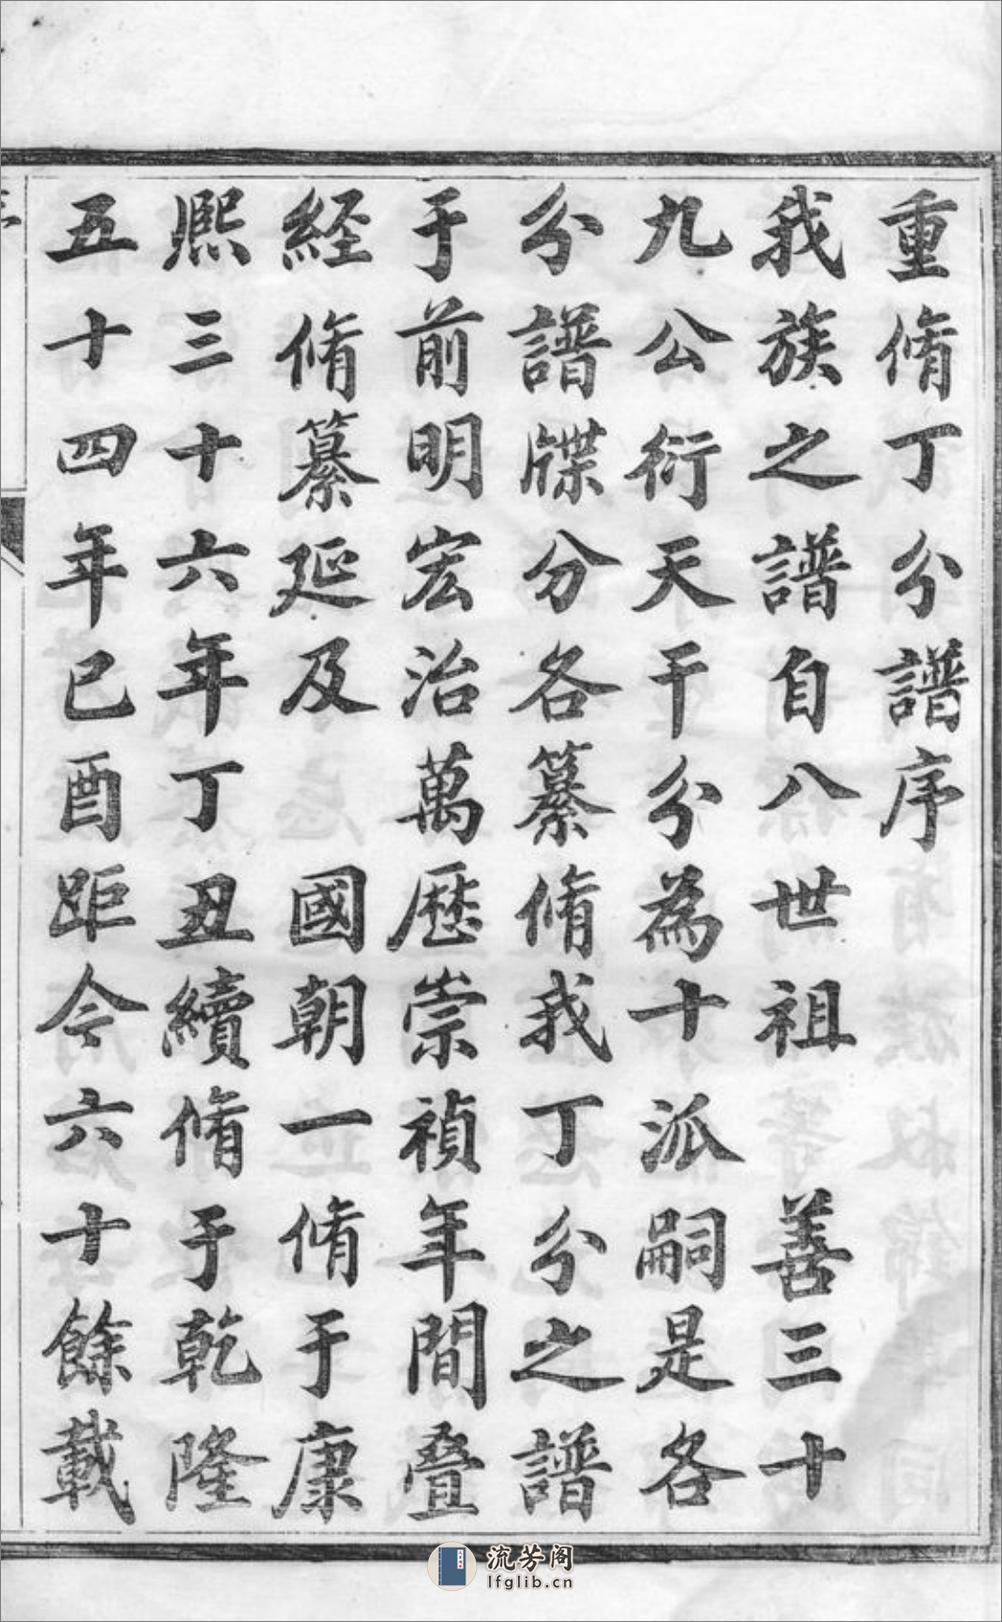 重脩丁分譜序
我族之譜自八世祖　善三十
九公衍天干分為十派嗣是各
分譜牒分各纂脩我丁分之譜
于前明宏治萬歷崇禎年間疊
経脩纂延及　國朝一脩于康
熙三十六年丁丑續脩于乾隆
五十四年己酉距今六十餘載
流芳阁
lfglib.cn